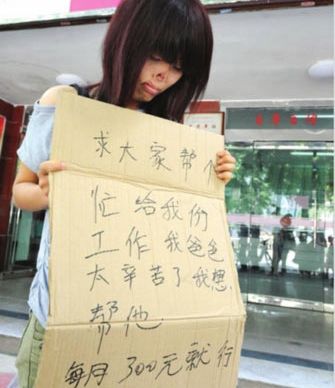 求大家帮个
忙给我们
工作我爸爸
太辛苦了我想
帮他
每月300元就行